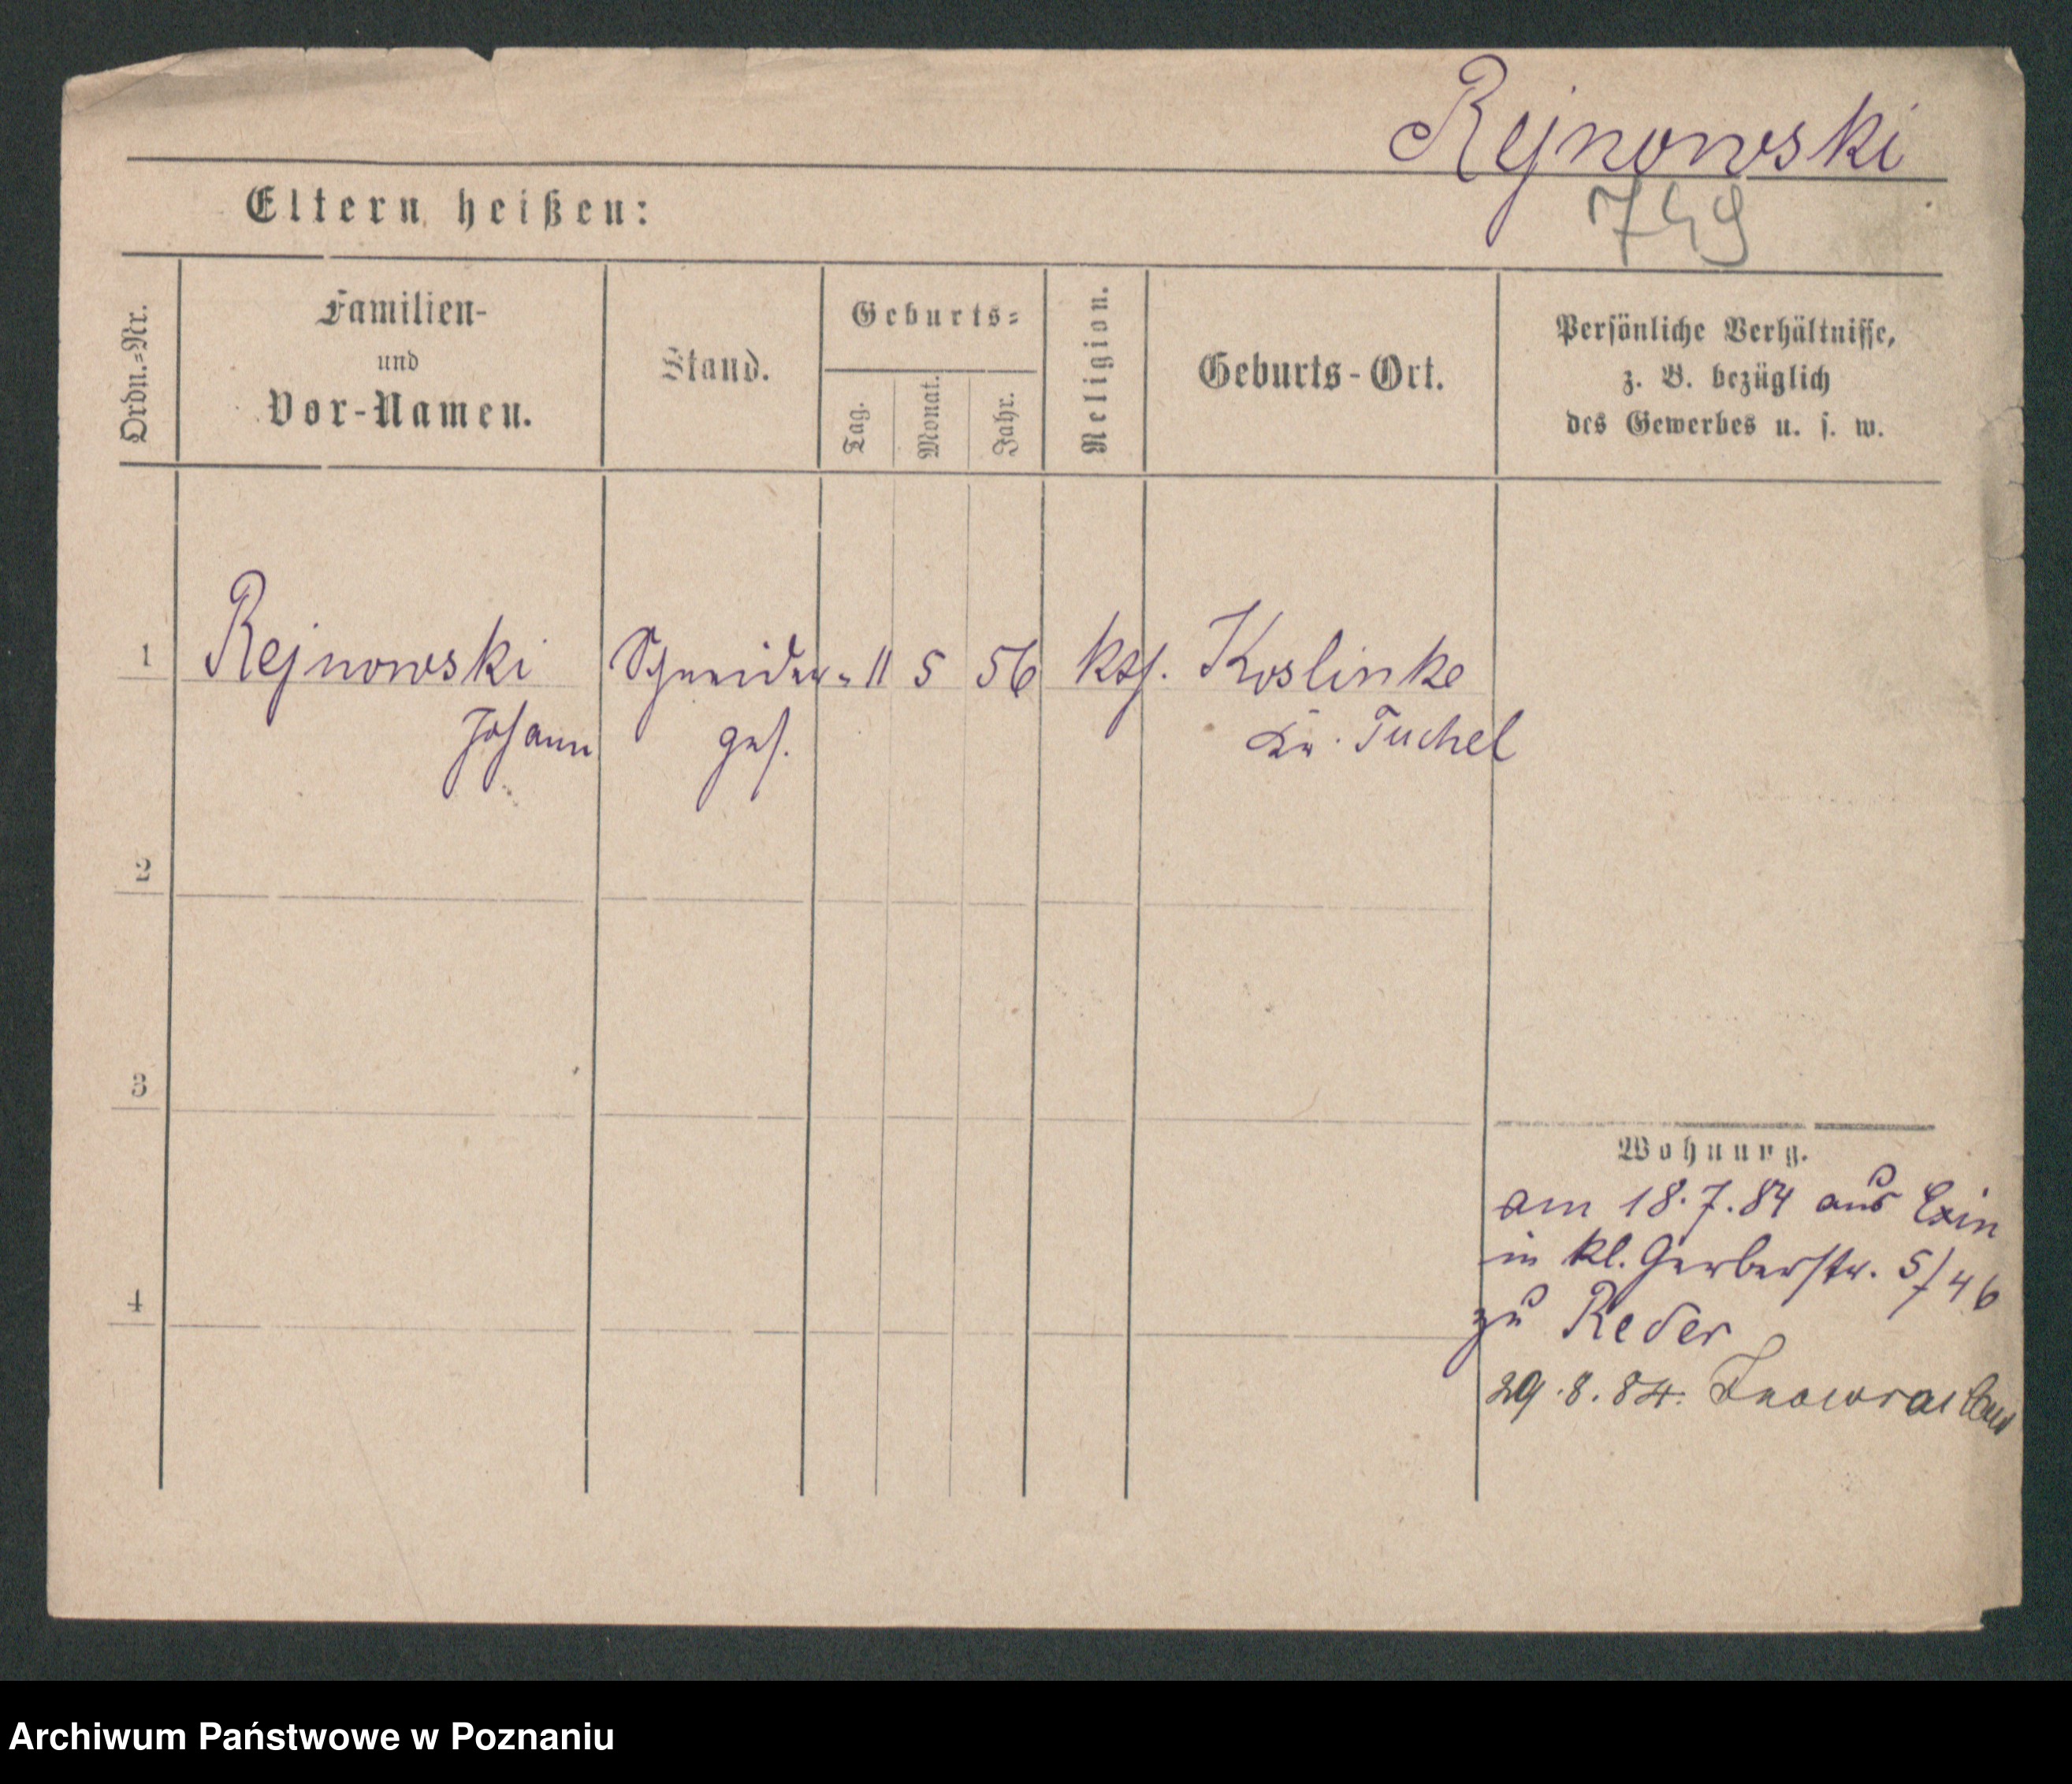 Rejnowski
749
Eltern heißen:
Ordn.=Nr.
Familien-
und
Vor-Namen.
Stand.
Geburts=
Tag.
Monat.
Jahr.
Religion.
Geburts-Ort.
Persönliche Verhältnisse,
z. B. bezüglich
des Gewerbes u. s. w.
1 Rejnowski Schneider= 11 5 56 kth. Koslinke
Johann ges. Kr. Tuchel
2
3
Wohnung.
am 18.7.84 aus Exin
in kl. Gerberstr. 5/46
4
zu Reder
29.8.84. Inowraclaw
Archiwum Państwowe w Poznaniu